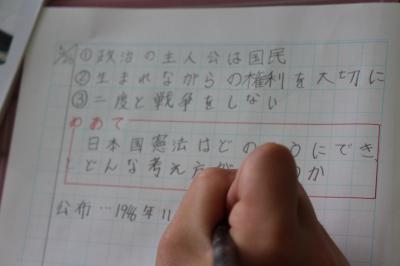 ①政治の主人公は国民
②生まれながらの権利を大切に
③二度と戦争をしない
めあて
日本国憲法はどの うにでき
どんな考え方が か
公布…1946年11